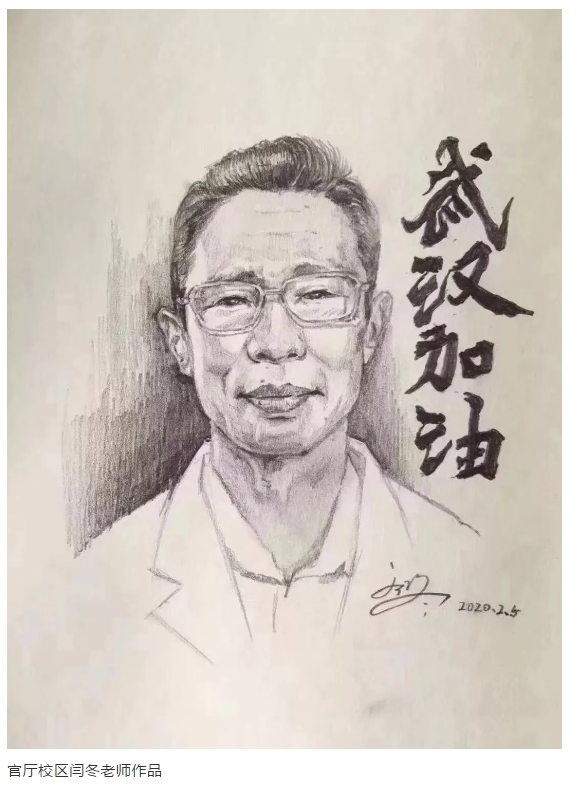 武汉加油
2020.2.5
官厅校区闫冬老师作品